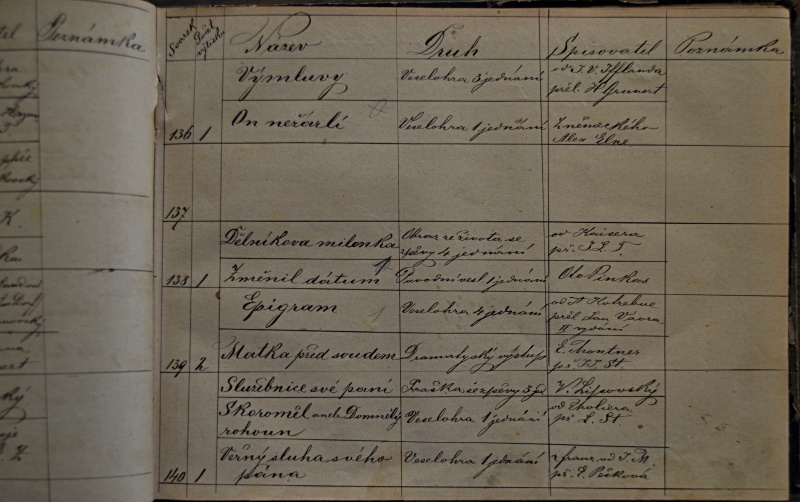 Poznámka
Svazek Počet výtisků Název Druh Spisovatel Poznámka
Výmluvy Veselohra 3 jednání od J. V. Ifflanda
přel. H Grunert
136 1 On nežárlí Veselohra 1 jednání Z německého
Alex Elne
137
Dělníkova milenka Obraz ze života se od Kaisera
zpěvy 4 jednání př. J. L. T.
138 1 Změnil dátum Původní vesl 1 jednání Oto Pinkas
Epigram Veselohra 4 jednání od A Kotzebue
přel Jan Vávra
II vydání
139 2 Matka před soudem Dramatyský výstup E.
př J. J. St
Služebnice své paní Fraška se zpěvy 3 jd V. Lipovský
Skoroměl aneb Domnělý Veselohra 1 jednání od Moliera
rohoun př L. St
Věrný sluha svého Veselohra 1 jednání z franc. od J. M.
140 1 pána př. E. Pešková